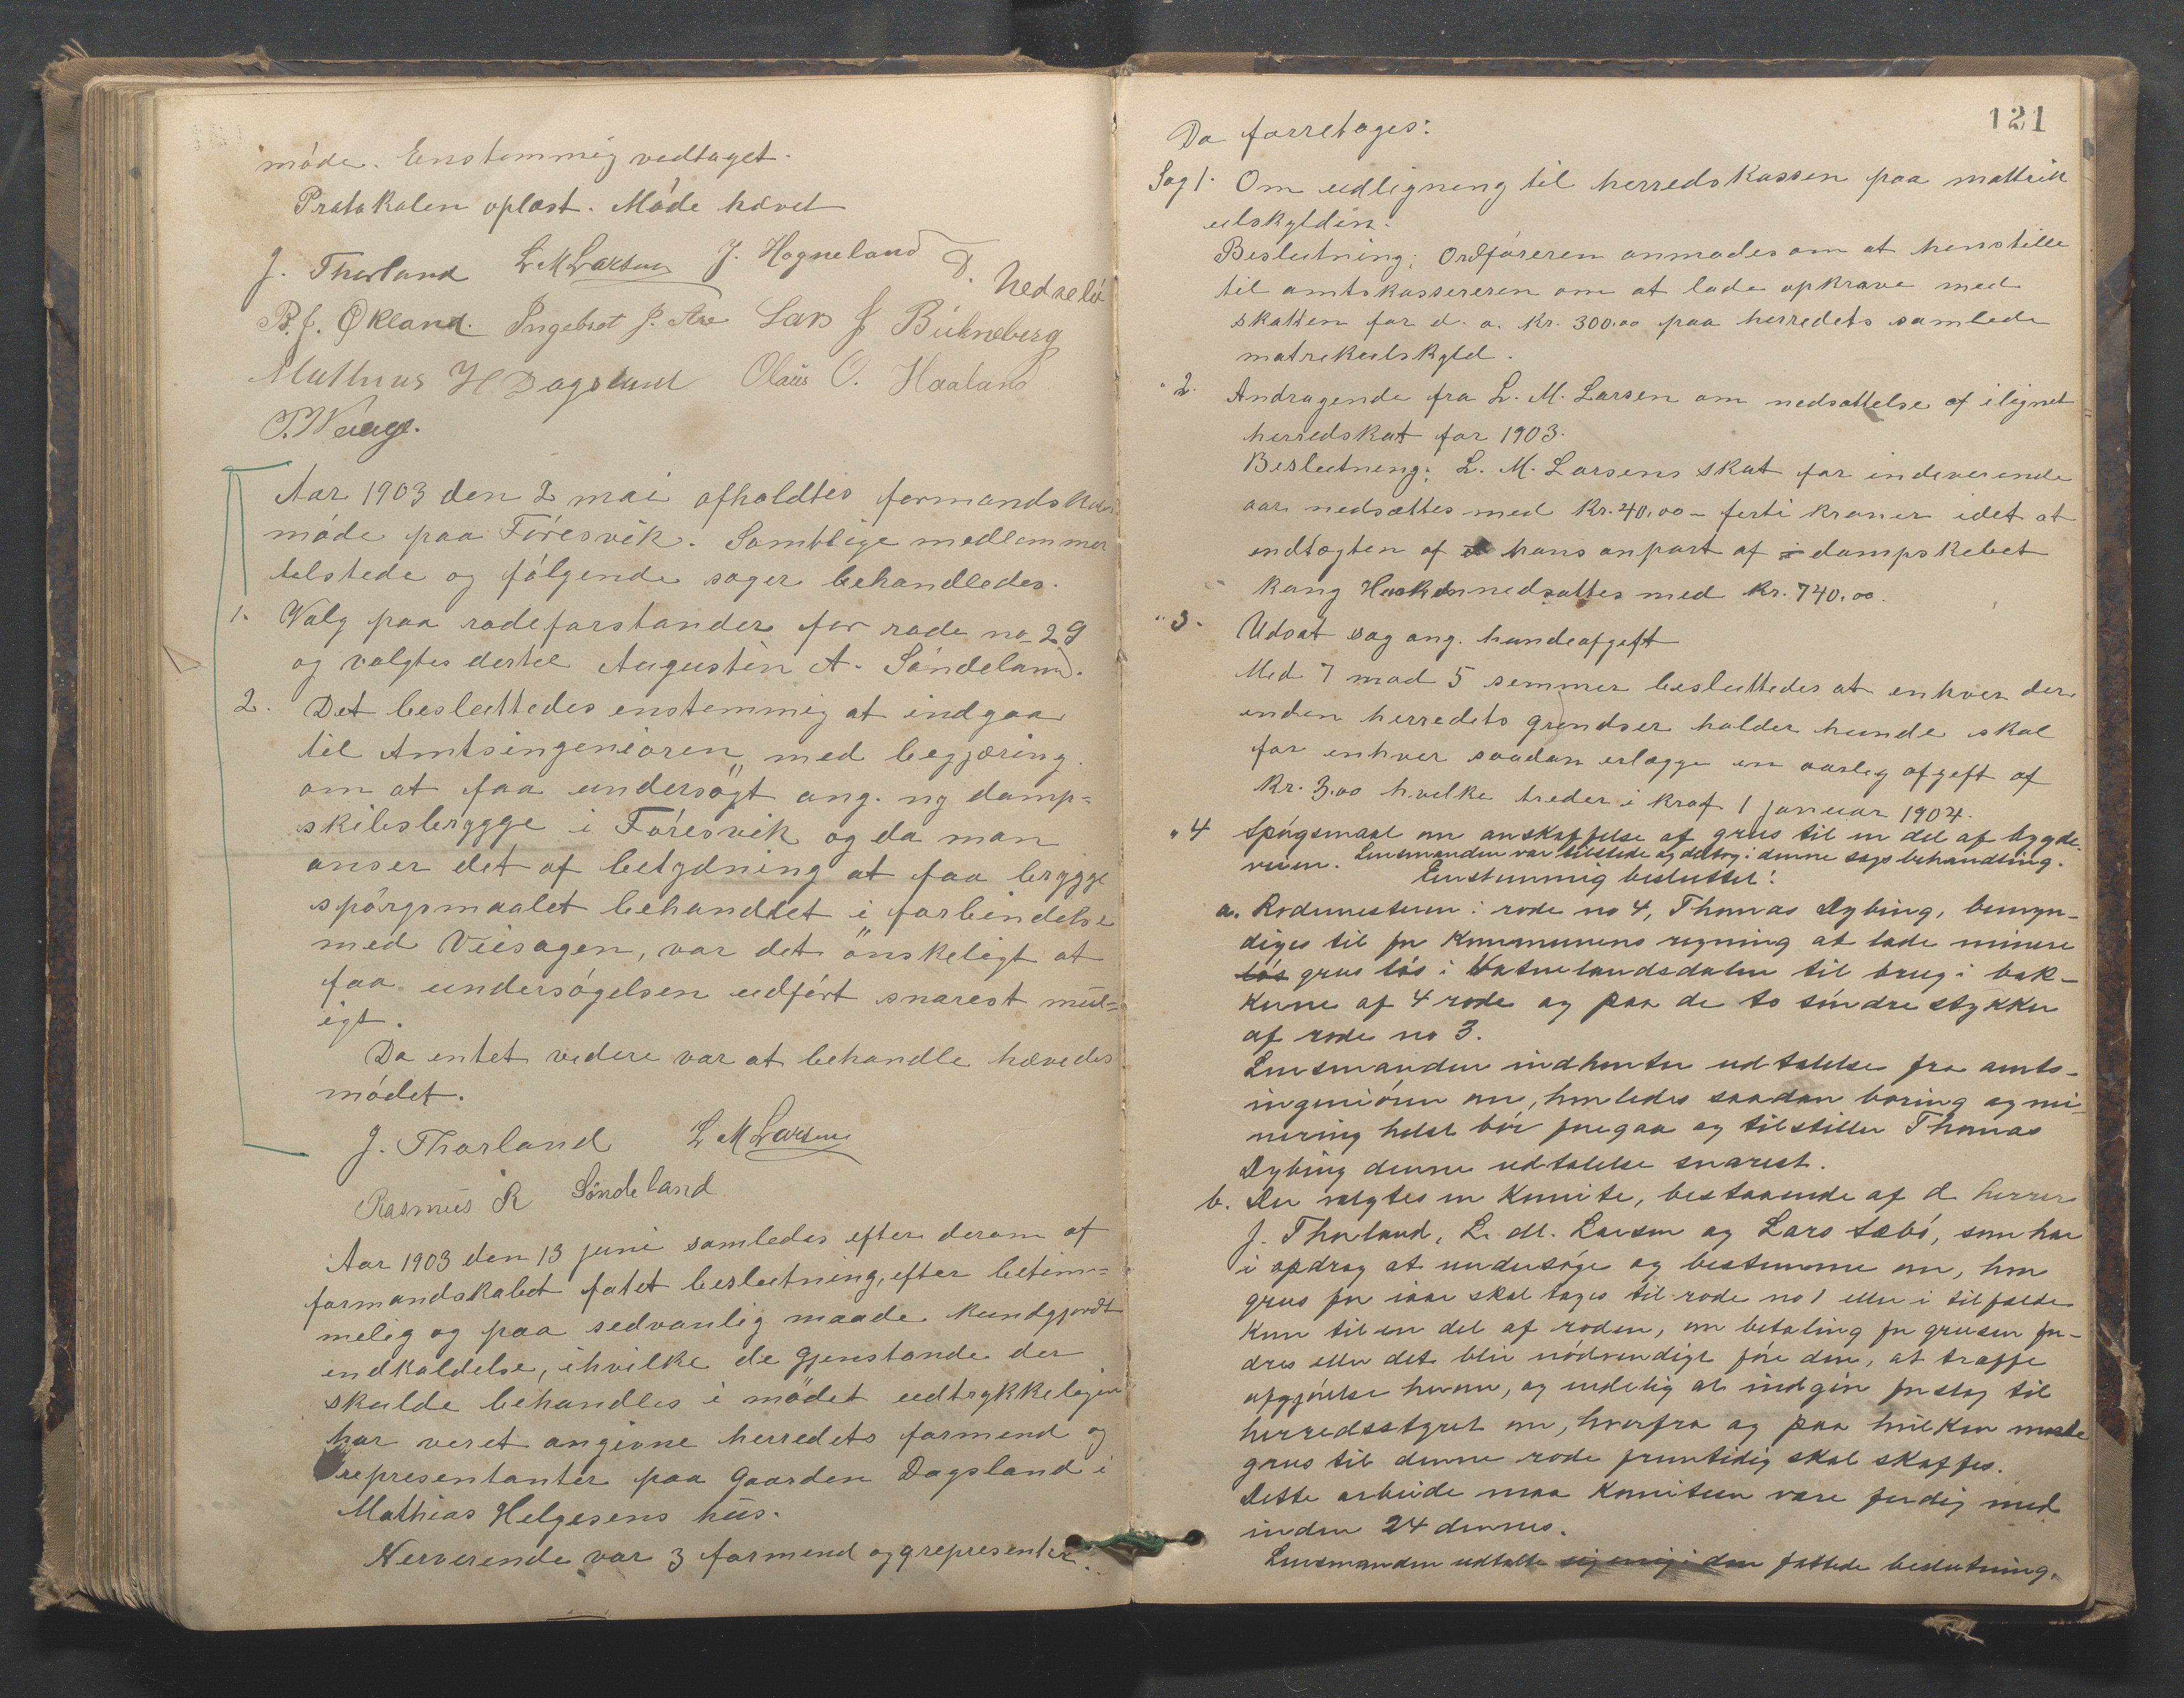 möde. Enstemmig vedtaget.
Protokolen oplæst. Möde hævet
J. Thorland L M Larsen J. Hogneland D. Nedrebö
B. J. Økland. Ingebret J. Are Lars J Bukneberg
Mathias H Dagsland Olaus O. Haaland
P. Waage.
Aar 1903 den 2 mai afholdtes formandskabs
möde paa Föresvik. Samtlige medlemmer
tilstede og fölgende sager behandledes.
1. Valg paa rodeforstander for rode no 29
og valgtes dertil Augustin A. Söndeland.
2. Det besluttedes enstemmig at indgaa
til Amtsingeniören med begjæring
om at faa undersögt ang. ny damp=
skibsbrygge i Föresvik og da man
anser det af betydning at faa brygge
spörgsmaalet behandlet i forbindelse
med Veisagen, var det önskeligt at
faa undersögelsen udfört snarest mul=
igt.
Da intet videre var at behandle hævedes
mödet.
J. Thorland L M Larsen
Rasmus R Söndeland
Aar 1903 den 13 juni samledes efter derom af
formandskabet fatet beslutning, efter betim=
melig og paa sedvanlig maade kundgjordt
indkaldelse, i hvilke de gjenstande der
skulde behandles i mödet udtrykkeligen
har veret angivne herredets formend og
representanter paa Gaarden Dagsland i
Mathias Helgesens hus.
Nerverende var 3 formend og 9 represent
121
Da foretoges:
Sag 1. Om udligning til herredskassen paa mattrik
ulskylden.
Beslutning: Ordföreren anmodes om at henstille
til amtskassereren om at lade opkræve med
skatten for d. a. Kr. 300.00 paa herredets samlede
matrikulskyld.
" 2. Andragende fra L. M. Larsen om nedsættelse af ilignet
herredskat for 1903.
Beslutning: L. M. Larsens skat for indeverende
aar nedsættes med Kr. 40,00 – forti kroner idet at
indtægten af hans anpart af i dampskibet
Kong Haakon nedsattes med Kr. 740.00.
" 3. Udsat sag ang. hundeafgift
Med 7 mod 5 stemmer besluttedes at enhver der
inden herredets grendser holder hunde skal
for enhver saadan erlægge en aarlig afgift af
Kr. 3.00 hvilke treder i kraf 1 januar 1904.
" 4 Spörgsmaal om anskaffelse af grus til en del af bygde-
veien. Lensmanden var tilstede og deltog i denne sags behandling.
Enstemmig besluttet:
a. Rodemesteren i rode no 4, Thomas Dybing, bemyn-
diges til for kommunens regning at lade minere
lös grus lös i Vatnelandsdalen til brug i bak-
kene af 4 rode og paa de to söndre stykker
af rode no 3.
Lensmanden indhenter udtalelse fra amts-
ingeniören om, hvorledes saadan boring og mi-
nering helst bör foregaa og tilstiller Thomas
Dybing denne udtalelse snarest.
b. Der valgtes en komite, bestaaende af d herrer
J. Thorland, L. M. Larsen og Lars Sæbö, som har
i opdrag at undersöge og bestemme om, hvor
grus for iaar skal tages til rode no 1 eller i tilfælde
kun til en del af roden, om betaling for grusen for-
dres eller det blir nödvendigt före den, at træffe
afgjörelse herom, og endelig at indgive forslag til
herredsstyret om, hvorfra og paa hvilken maade
grus til denne rode fremtidig skal skaffes.
Dette arbeide maa komiteen være ferdig med
inden 24 dennes.
Lensmanden udtalte sig enig i den fattede beslutning.